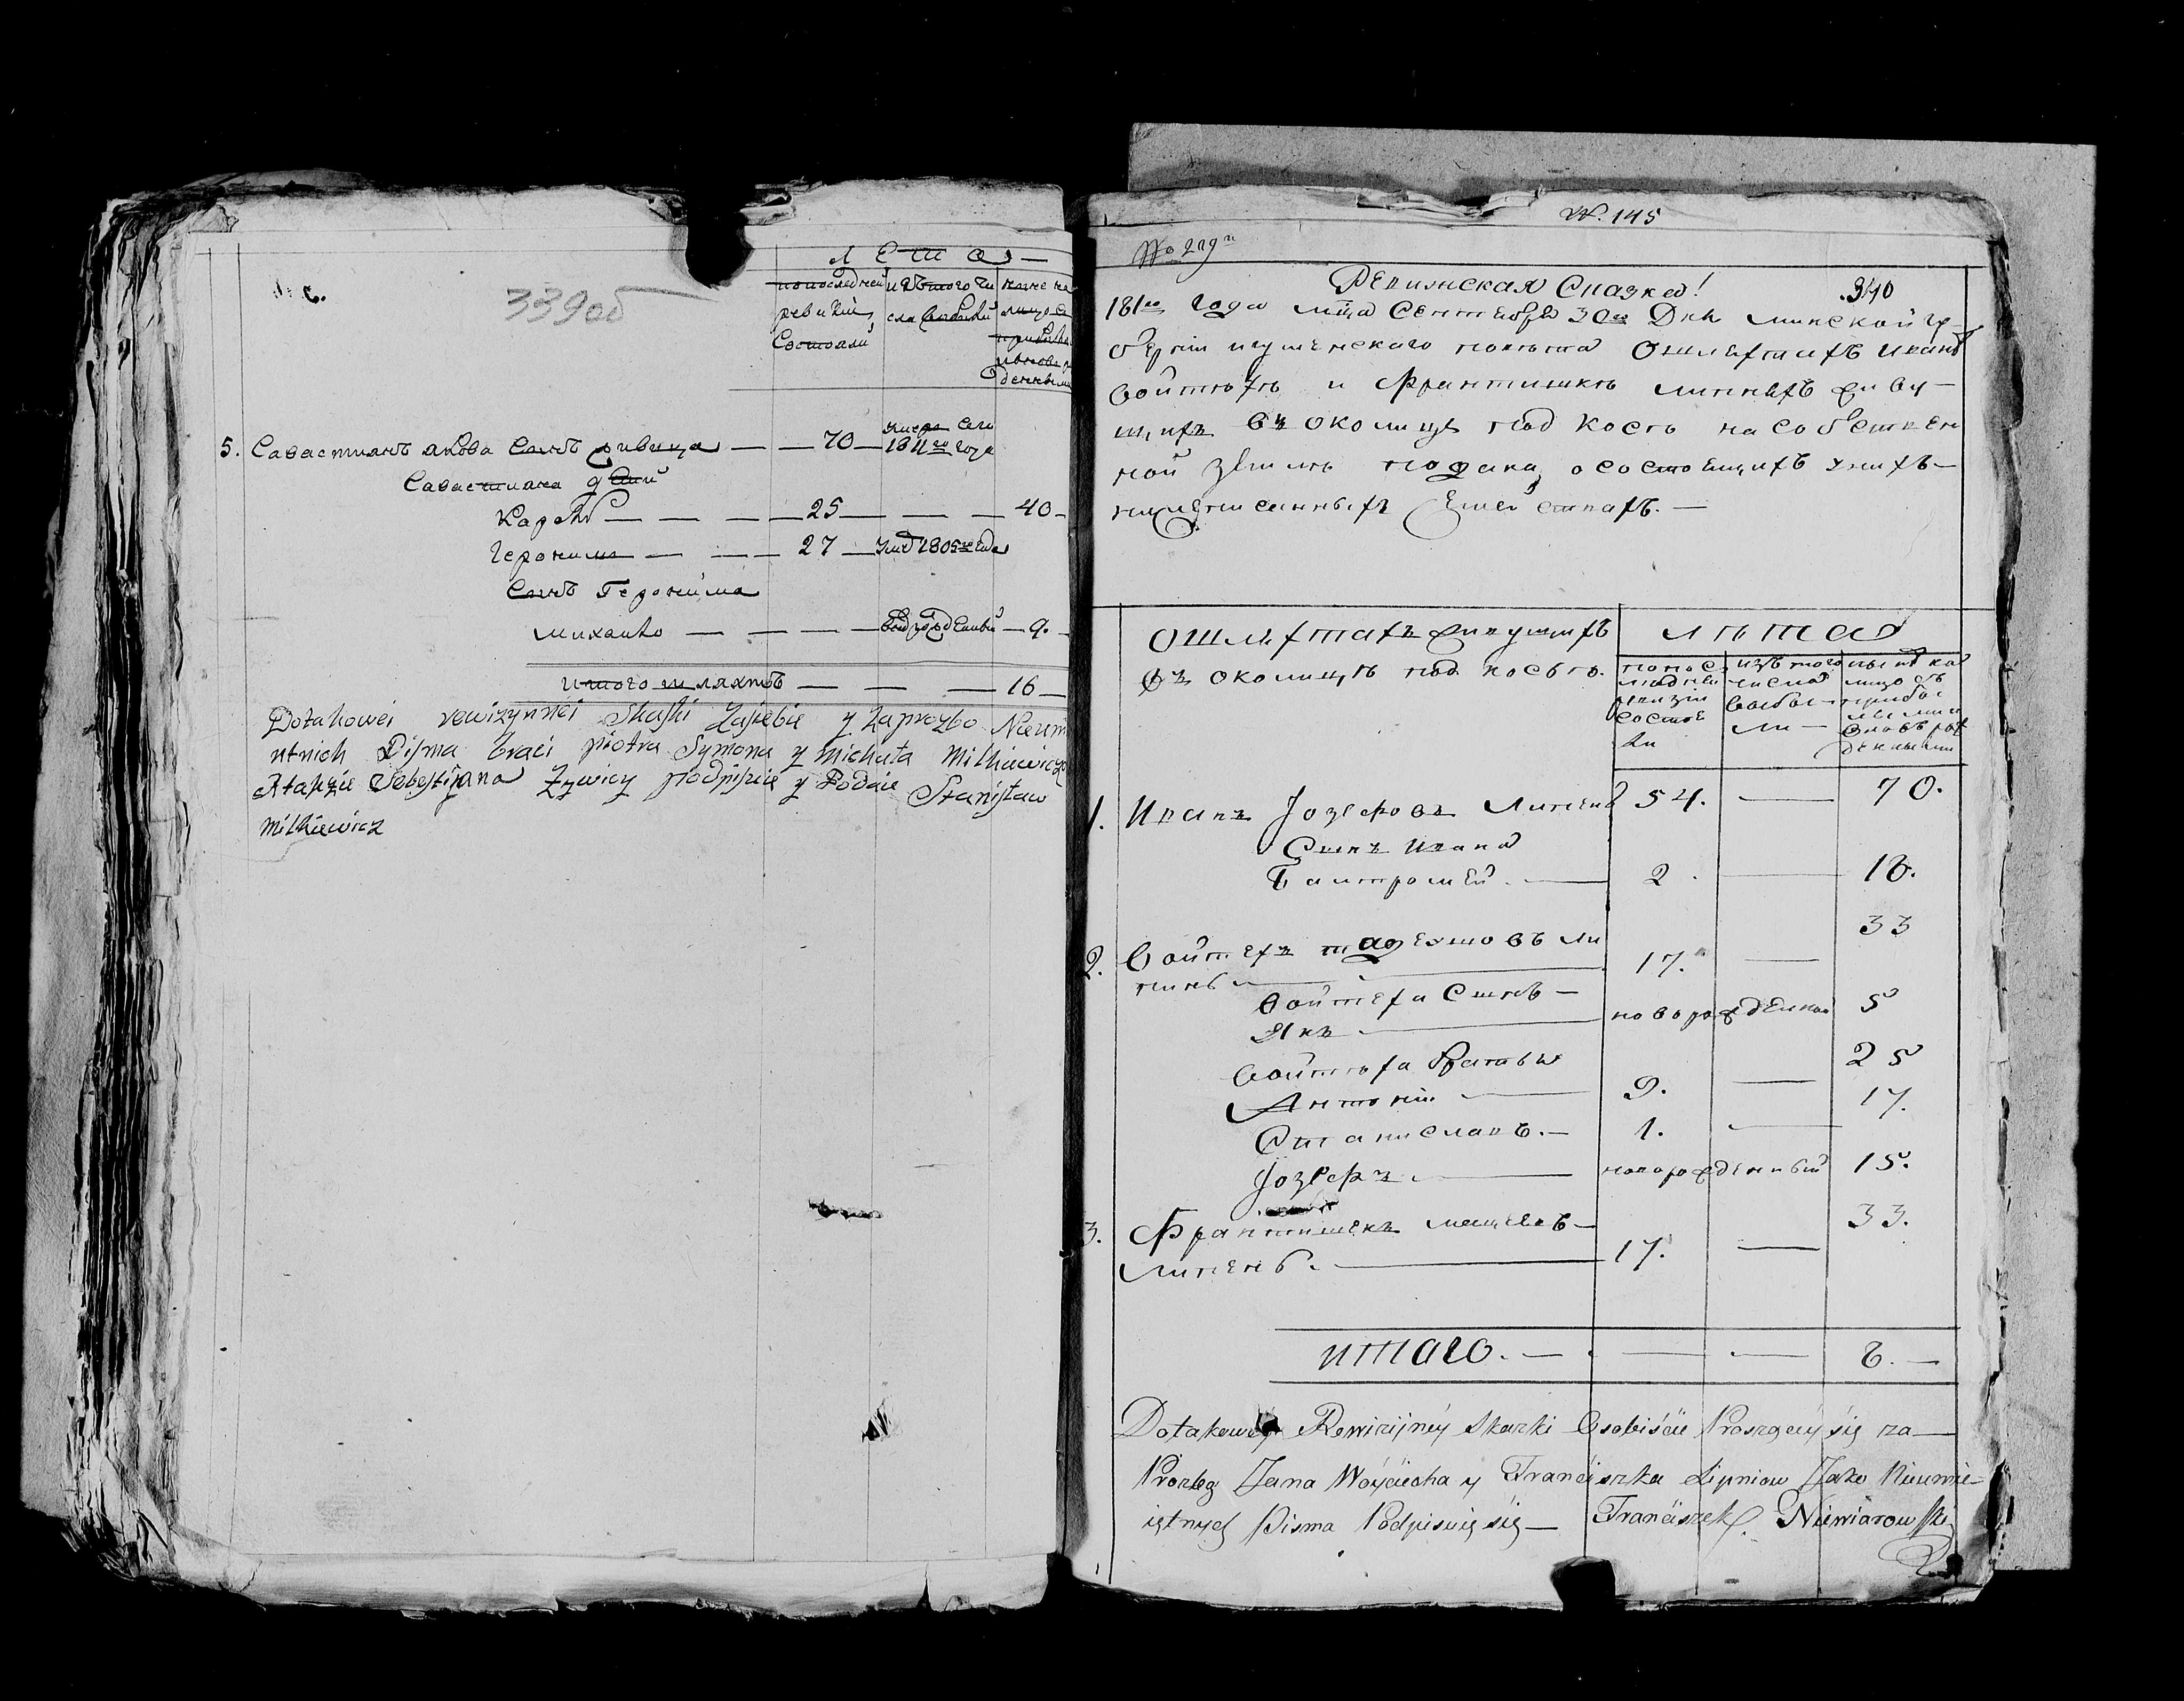 339об
Лета
по последней
ревизии
Состояли
изъ того чи
сла
ныне на
лицо съ
5. Савастианъ Якова Сынъ Живица — — 70 — умеръ сего 1811го года
Савастиана дети
Кароль — — — — 25 — — — 40 —
Геронимъ — — — 27 — умеръ 1805го года
Сынъ Геронима
михайло — — — — новорожденный — 9. —
итого шляхты — — — 16 —
Dotakowei rewizynnei Skaski Zasiebie y Zaprozbo Nieumi
ntnich Pisma braci piotra Symona y Michała Milkiewiczo
Atakże Sebestijana Zywicy podpisuie y Podaie Stanisław
Milkiewicz
№. 145
No 219
340
Ревижская Сказка!
1811го года мца Сентебра 30го Дня минской гу-
бернии игуменскаго повѣта О шляхтахъ иванѣ
войтѣхѣ и Франтишкѣ липняхъ живу-
щихъ въ околицѣ под косъю на собствен
ной землѣ подана, о состоещихъ у нихъ —
нижеписанныхъ семействахъ. —
О шляхтахъ живущихъ
въ околицѣ под косъю.
лѣта
по пос-
ледней
ревизіи
состоя
ли
изъ того
числа
выбы-
ли —
ныне на
лицо съ
прибы
лыми и
вновь рож
денными
1. Иванъ Јозефовъ Липень 54. — 70.
Сынъ Ивана
Балтромей. — 2. — 18.
2. Войтехъ тадеушовъ ли
пень — 17. — 33
Войтеха Сынъ —
Янъ — новорожденный 5
Войтѣха Братья
Антоній — 9. — 25
Станиславъ. — 1. — 17.
Јозефъ — новорожденный 15.
3. Франтишекъ мацеевъ —
Липень. — 17. — 33.
итаго. — — — 8. —
Dotakowey Rewizijnéy Skazki Osobiście Proszący się za —
Prozbą Jana Woyciecha y Franciszka Lipniow Jako Nieumie-
iętnych Pisma Podpisuię się — Franciszek Niewiarowski